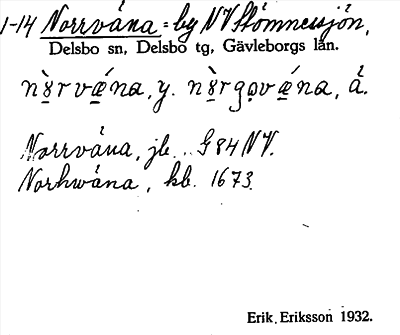 1-14 Norrvåna = by NV Stömnessjön,
Delsbo sn, Delsbo tg, Gävleborgs län.
nụ̀rvǽna, y. nụ̀rgọvǽna, å.
Norrvåna, jb. G84 NV.
Norhwåna, kb. 1673.
Erik Eriksson 1932.